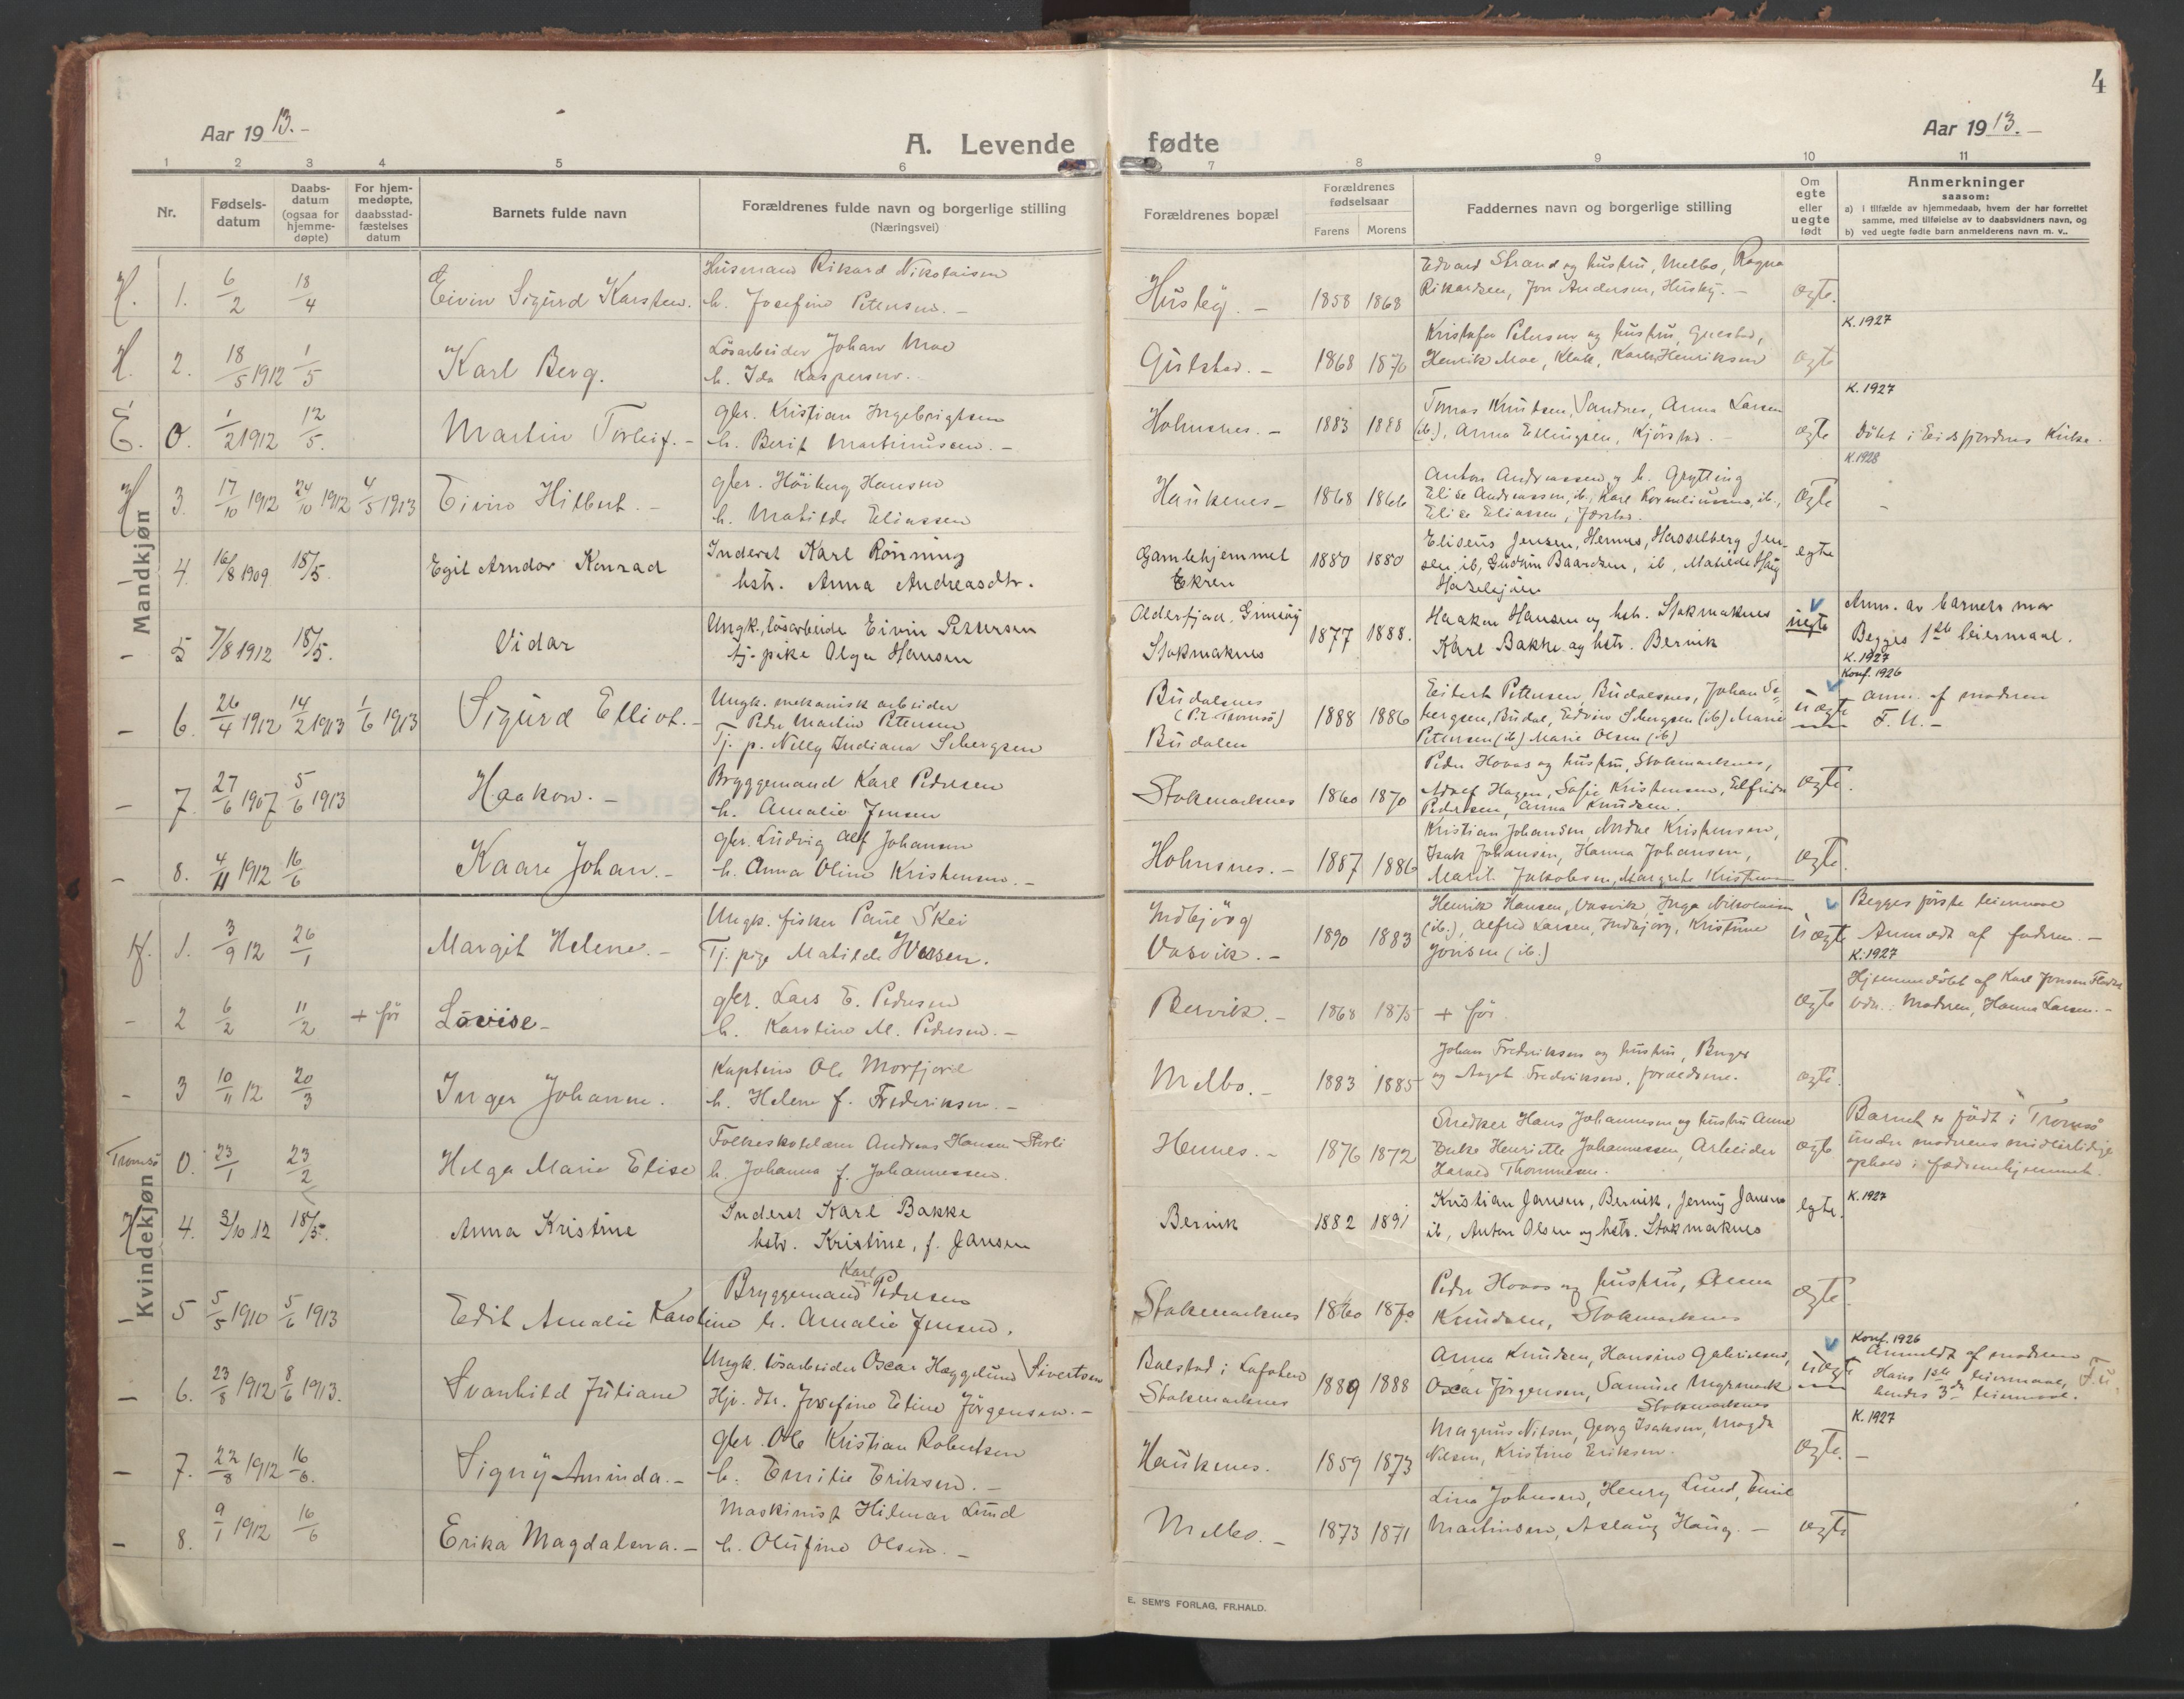 4
Aar 19 13.-
A. Levende fødte
Aar 19 13.-
1 2 3 4 5 6 7 8 9 10 11
Nr.
Fødsels-
datum
Daabs-
datum
(ogsaa for
hjemme-
døpte)
For hjem-
medøpte,
daabsstad-
fæstelses
datum
Barnets fulde navn
Forældrenes fulde navn og borgerlige stilling
(Næringsvei)
Forældrenes bopæl
Forældrenes
fødselsaar
Farens Morens
Faddernes navn og borgerlige stilling
Om
egte
eller
uegte
født
Anmerkninger
saasom:
a) i tilfælde av hjemmedaab, hvem der har forrettet
samme, med tilføielse av to daabsvidners navn, og
b) ved uegte fødte barn anmelderens navn m. v..
Mandkjøn
H. 1. 6/2 18/4 Eivin Sigurd Karsten.
Husmand Rikard Nikolaisen
h. Josefine Petersen.-
Husby.- 1858 1868
Edvard Strand og hustru, Melbo, Ragna
Rikardsen, Jon Andersen, Husby.-
ægte.
H. 2. 18/5 1912 1/5 Karl Berg.
Lösarbeider Johan Moe
h. Ida Kaspersen.
Gulstad.- 1868 1870
Kristofer Petersen og hustru, Gulstad,
Henrik Moe, Karl Henriksen
ægte
K. 1927
E. 0. 1/2 1912 12/5. Martin Torleif.-
gbr. Kristian Ingebrigtsen
h. Berit Martinussen.-
Holmsnes.- 1883 1888
Tomas Knutsen, Sandnes, Anna Larsen
(ib.), Anna Ellingsen, Kjörstad.-
ægte
K. 1927
Döbt i Eidsfjordens Kirke.
H 3. 17/10 1912 24/10 1912 4/5 1913 Eivin Hilbert.-
gbr. Höiberg Hansen
h. Matilde Eliassen
Haukenes- 1868 1866
Anton Andreassen og h. Grytting
Elise Andreassen, ib, Karl Korneliussen, ib.,
Elise Eliassen,
ægte
K. 1928
-
- 4. 16/8 1909 18/5. Egil Arndor Konrad
Inderst Karl Rønning
hstr. Anna Andreasdtr.
Gamlehjemmet
Ekren
1880 1880
Eliseus Jensen, Hennes, Hasselberg Jen-
sen, ib, Gudrun Baardsen, ib, Matilde Haug
egte
- 5 7/8 1912 18/5. Vidar
Ungk., lösarbeide Eivin Petersen
tj. pike Olga Hansen
Olderfjord, Gimsöy
Stokmaknes
1877 1888.
Haakon Hansen og hstr. Stokmaknes
Karl Bakke og hstr. Bervik
uegte
Anm. av barnets mor
Begges 1ste leiermaal.
K. 1927
- 6. 26/4 1912 14/2 1913 1/6 1913 Sigurd Elliot.-
Ungk. mekanisk arbeider
Peder Martin Petersen
Tj. p. Nelly Indiana Sebergsen
Budalsnes
Budalen
1888 1886
Eilert Petersen, Budalsnes, Johan Se-
bergsen, Budal, Edvin Sebergsen (ib) Marie
Petersen (ib) Marie Olsen (ib)
uægte
Konf. 1926
anm. af moderen
F. U.-
- 7. 27/6 1907 5/6 1913 Haakon.-
Bryggemand Karl Pedersen
h. Amalie Jensen
Stokmarknes 1860 1870
Peder Hovos og hustru, Stokmarknes,
Adolf Hagen, Sofie Kristensen, Elfrida
Pedersen, Anna Knudsen.
ægte.
- 8. 4/11 1912 16/6 Kaare Johan.-
gbr. Ludvig Alf Johansen
h. Anna Oline Kristensen.-
Holmsnes.- 1887 1886
Kristian Johansen, Nordal Kristensen,
Isak Johansen, Hanna Johansen,
Marit Jakobsen, Margrete Kristensen
ægte.
Kvindekjøn
H. 1. 3/9 12 26/1 Margit Helene.-
Ungk. fisker Paul Skei
Tj. pige Matilde Iversen.
Indbjörg
Vasvik.-
1890 1883
Henrik Hansen, Vasvik, Inga Nikolaisen
(ib.), Alfred Larsen, Indbjörg, Kristine
Jonsen (ib.)
uægte
Begges förste leiermaal
Anmeldt af faderen.-
K. 1927
- 2 6/2 11/2 + för Lovise-
gbr. Lars E. Pedersen
h. Karoline M. Pedersen.-
Bervik.- 1868 1875 + för
ægte
Hjemmedöbt af Karl Jonsen
Vidn.: Moderen, Hanna Larsen.-
- 3 10/11 12 20/3 Inger Johanne.
Kaptein Ole Morfjord
h. Helene f. Frederiksen.-
Melbo.- 1883 1885
Johan Frederiksen og hustru, Birger
og Aagot Frederiksen, forældrene.
ægte.
Tromsö 0. 23/1 23/2 Helga Marie Elise
Folkeskolelærer Andreas Hansen Storli
h. Johanna f. Johannessen.
Hennes.- 1876 1872
Snedker Hans Johannessen og hustru Anne
Henriette Johannessen, Arbeider
Harald Thommesen.
ægte
Barnet er födt i Tromsö
under moderens midlertidige
ophold i fædrenehjemmet.
H 4. 3/10 12 18/5. Anna Kristine
Inderst Karl Bakke
hstr. Kristine, f. Jansen
Bervik 1882 1891
Kristian Jansen, Bervik, Jenny Jansen
ib, Anton Olsen og hstr. Stokmaknes
egte.
K. 1927
- 5 5/5 1910 5/6 1913 Edit Amalie Karoline
Bryggemand Karl Pedersen
h. Amalie Jensen.
Stokmarknes 1860 1870
Peder Hovos og hustru, Anna
Knudsen, Stokmarknes
ægte.
- 6. 23/8 1912 8/6 1913. Svanhild Juliane
Ungk. lösarbeider Oscar Hæggelund Sivertsen
Hjv. dtr. Josefine Eline Jörgensen.-
Balstad i Lofoten
Stokmarknes
1889 1888
Anna Knudsen, Hansine Gabrielsen,
Oscar Jörgensen, Samuel Myrmark
Stokmarknes
uægte
Konf. 1926
Anmeldt af moderen
Hans 1ste leiermaal, F.U.
hendes 3de leiermaal.
- 7. 22/8 1912 16/6. Signy Aminda.-
gbr. Ole Kristian Robertsen
h. Emilie Eriksen.-
Haukenes. 1859 1873
Magnus Nilsen, Georg Isaksen, Magda
Nilsen, Kristine Eriksen.
ægte.
K. 1927
-
- 8. 9/1 1912 16/6 Erika Magdalena.-
Maskinist Hilmar Lund
h. Olufine Olsen.-
Melbo.- 1873 1871
Lina Johnsen, Henry Lund, Emil
Martinsen, Aslaug Haug.-
ægte
E. SEM'S FORLAG, FR.HALD.